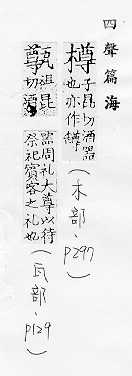 四聲篇海
樽子昆切酒器
也亦作罇
(木部、
P297)
甎祖昆
尊切酒
器周礼大尊以待
祭祀賓客之礼也
(瓦部、
P129)